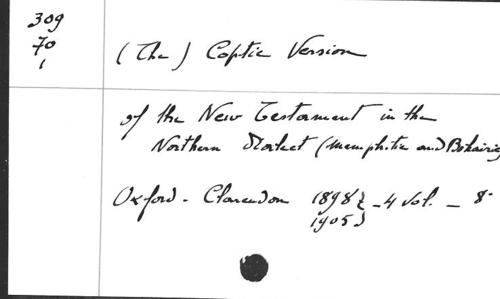 309
70
1
(The) Coptic Version
of the New Testament in the
Northern Dialect (Memphitic and Bohairic
Oxford - Clarendon 1898 } - 4 vol. - 8°
1905 }